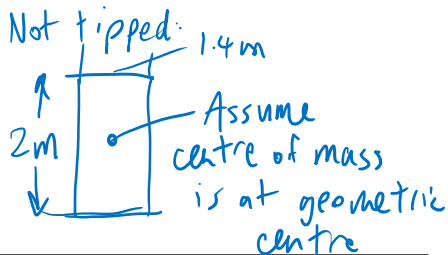 Not tipped:
1.4m
2m
Assume
centre of mass
is at geometric
centre